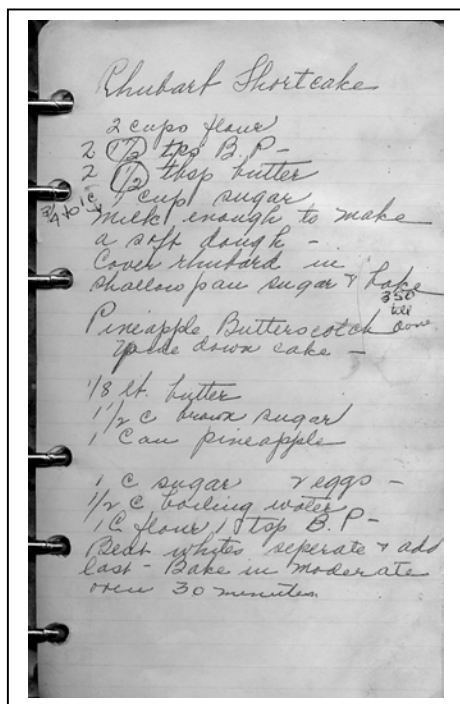 Rhubart Shortcake
2 cups flour
2 1/2 tps B.P-
2 1/2 tbsp butter
3/4 to 1 c
1 cup sugar
milk enough to make
a soft dough -
Cover rhubard in
shallow pan sugar & bake
350
till
done
Pineapple Butterscotch
upside down cake -
1/8 lt. butter
1 1/2 c brown sugar
1 Can pineapple
1 C sugar 2 eggs -
1/2 c boiling water
1 C flour 1 tsp B.P-
Beat whites seperate & add
last - Bake in moderate
oven 30 minutes